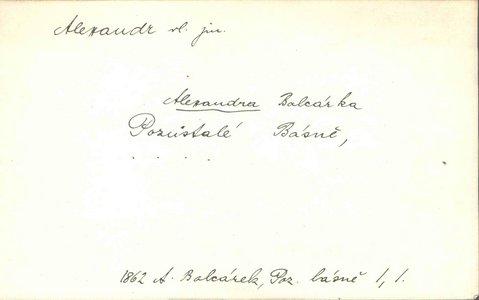 Alexandr vl. jm.
Alexandra Balcárka
Pozůstalé Básně,
. . . .
1862 A. Balcárek, Poz. básně 1, 1.